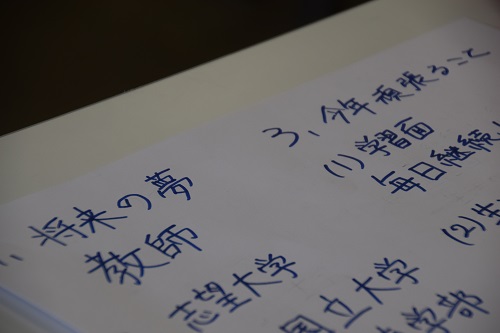 1、将来の夢
教師
志望大学
国立大学
学部
3、今年頑張ること
(1)学習面
毎日継続
(2)生